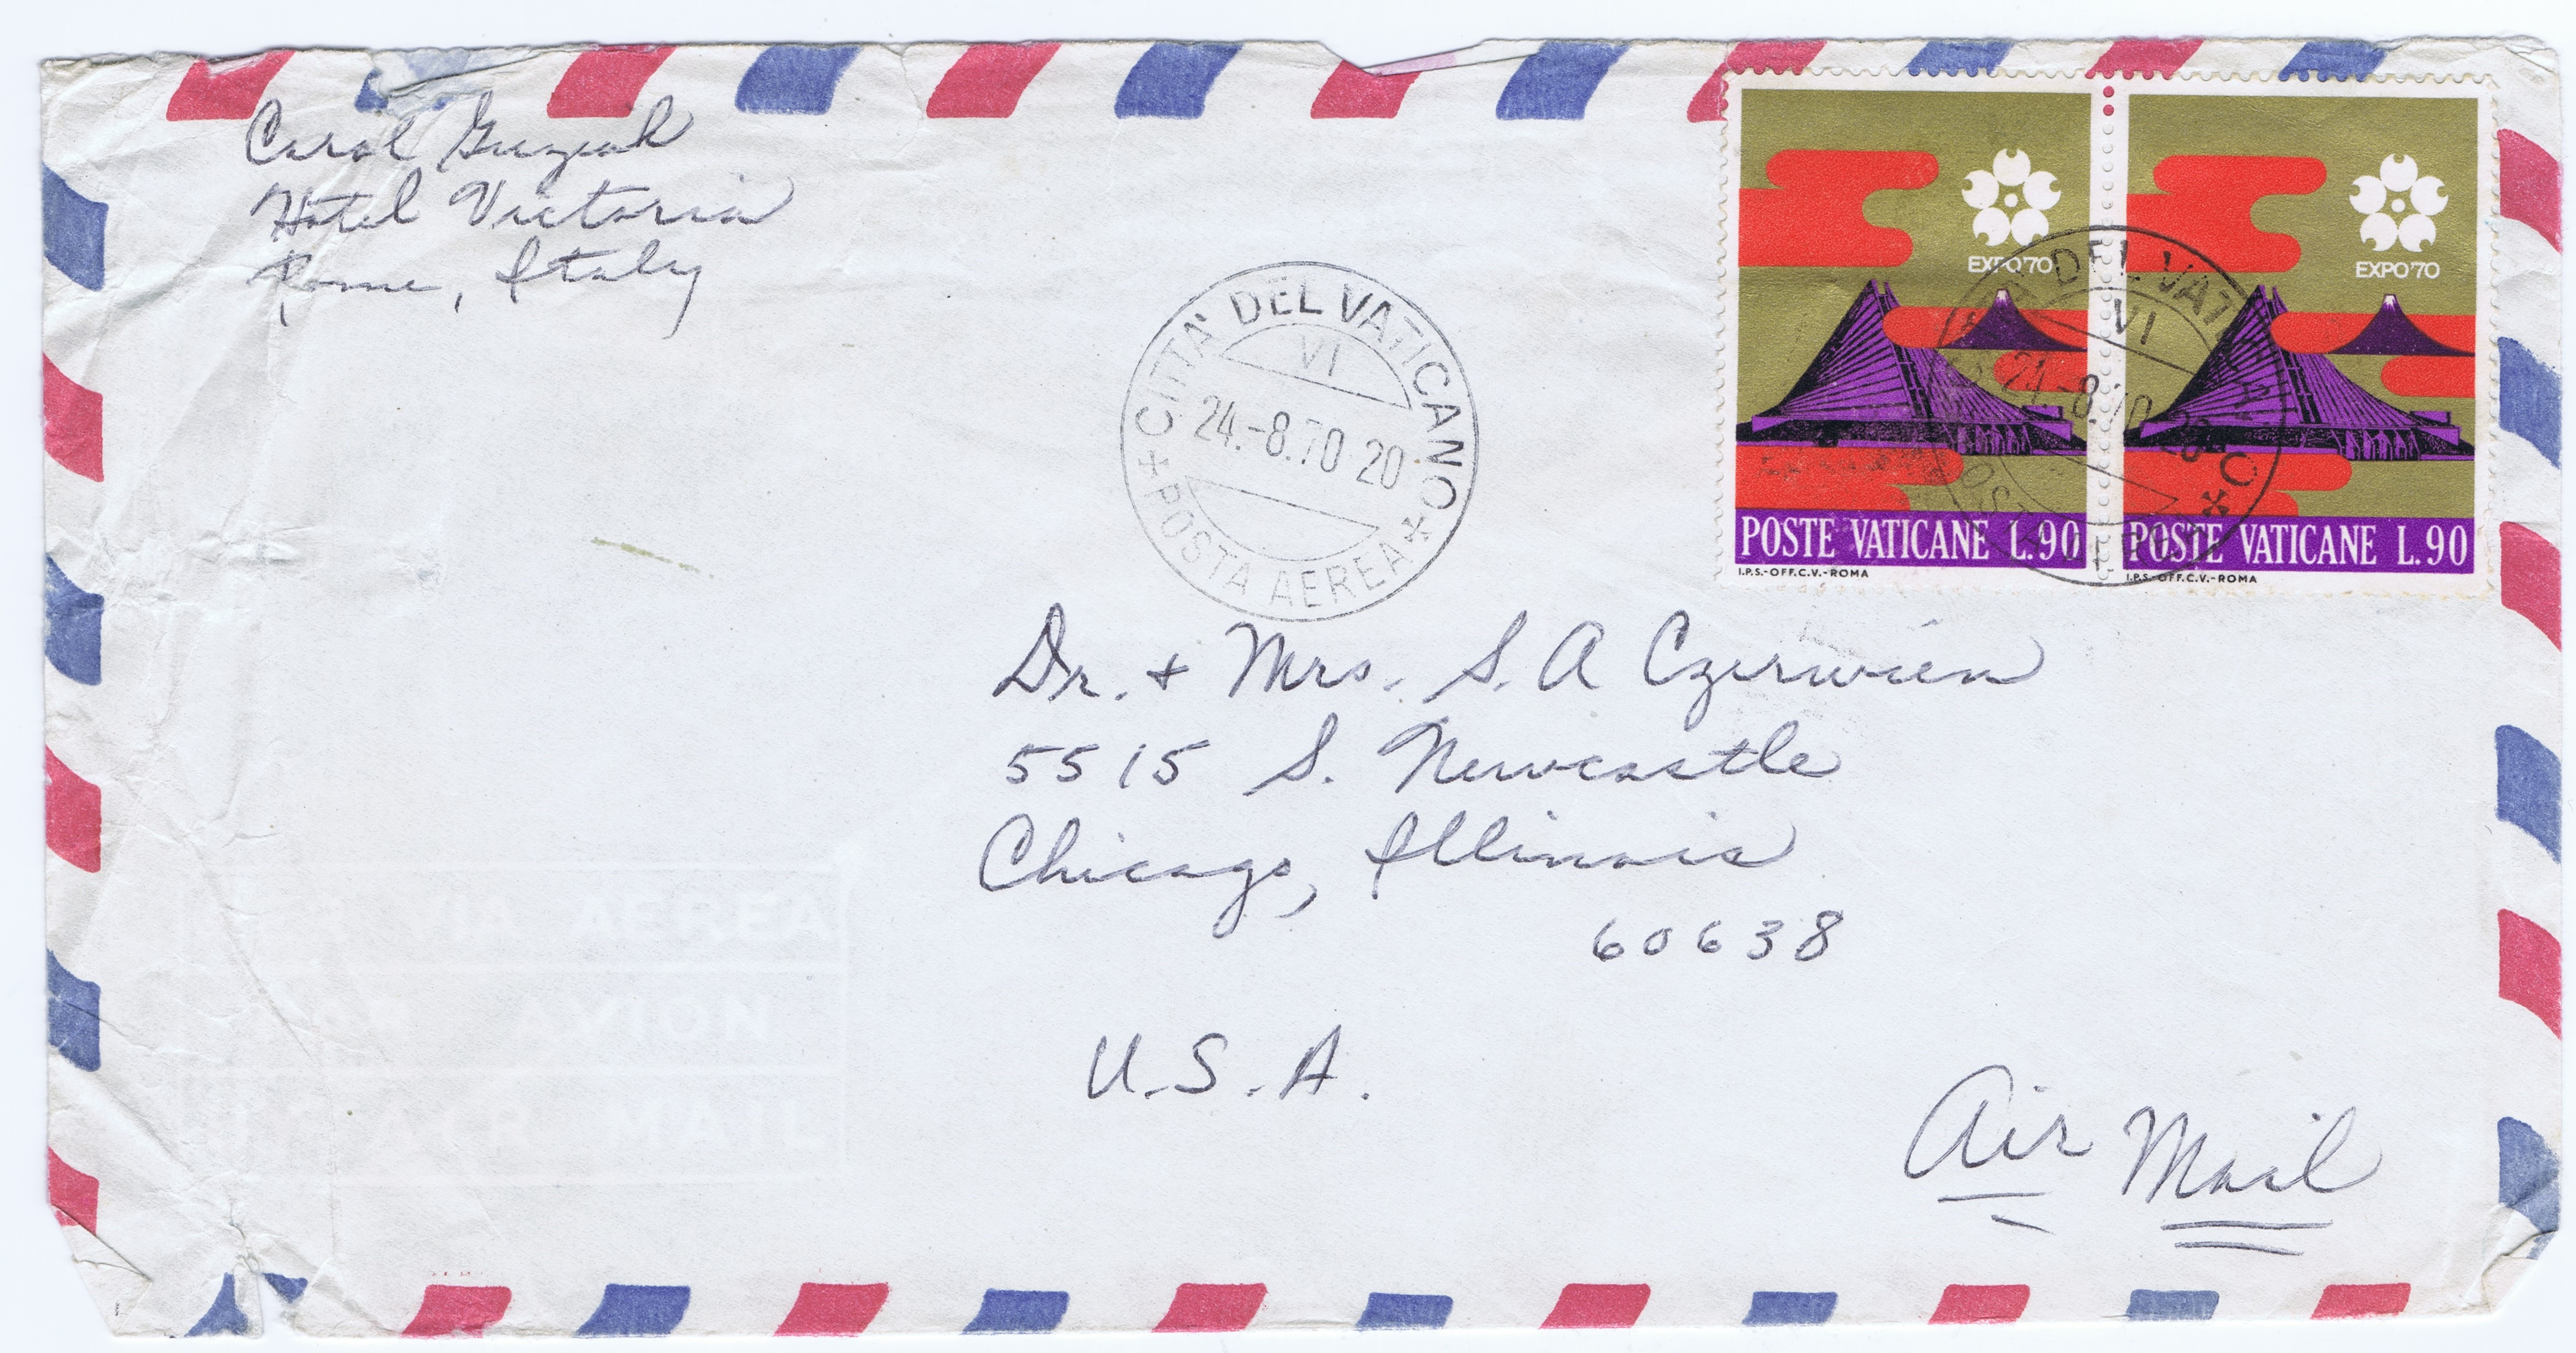 Carol Guziak
Hotel Victoria
Rome, Italy
CITTA' DEL VATICANO
VI
24.-8.70 20
POSTA AEREA
EXPO'70
POSTE VATICANE L.90
I.P.S.-OFF.C.V.-ROMA
EXPO'70
POSTE VATICANE L.90
I.P.S.-OFF.C.V.-ROMA
DEL VAT
VI
24.-8.70 20
Dr. + Mrs. S. A Czerwien
5515 S. Newcastle
Chicago, Illinois
60638
U.S.A.
Air Mail
VIA AEREA
AVION
MAIL